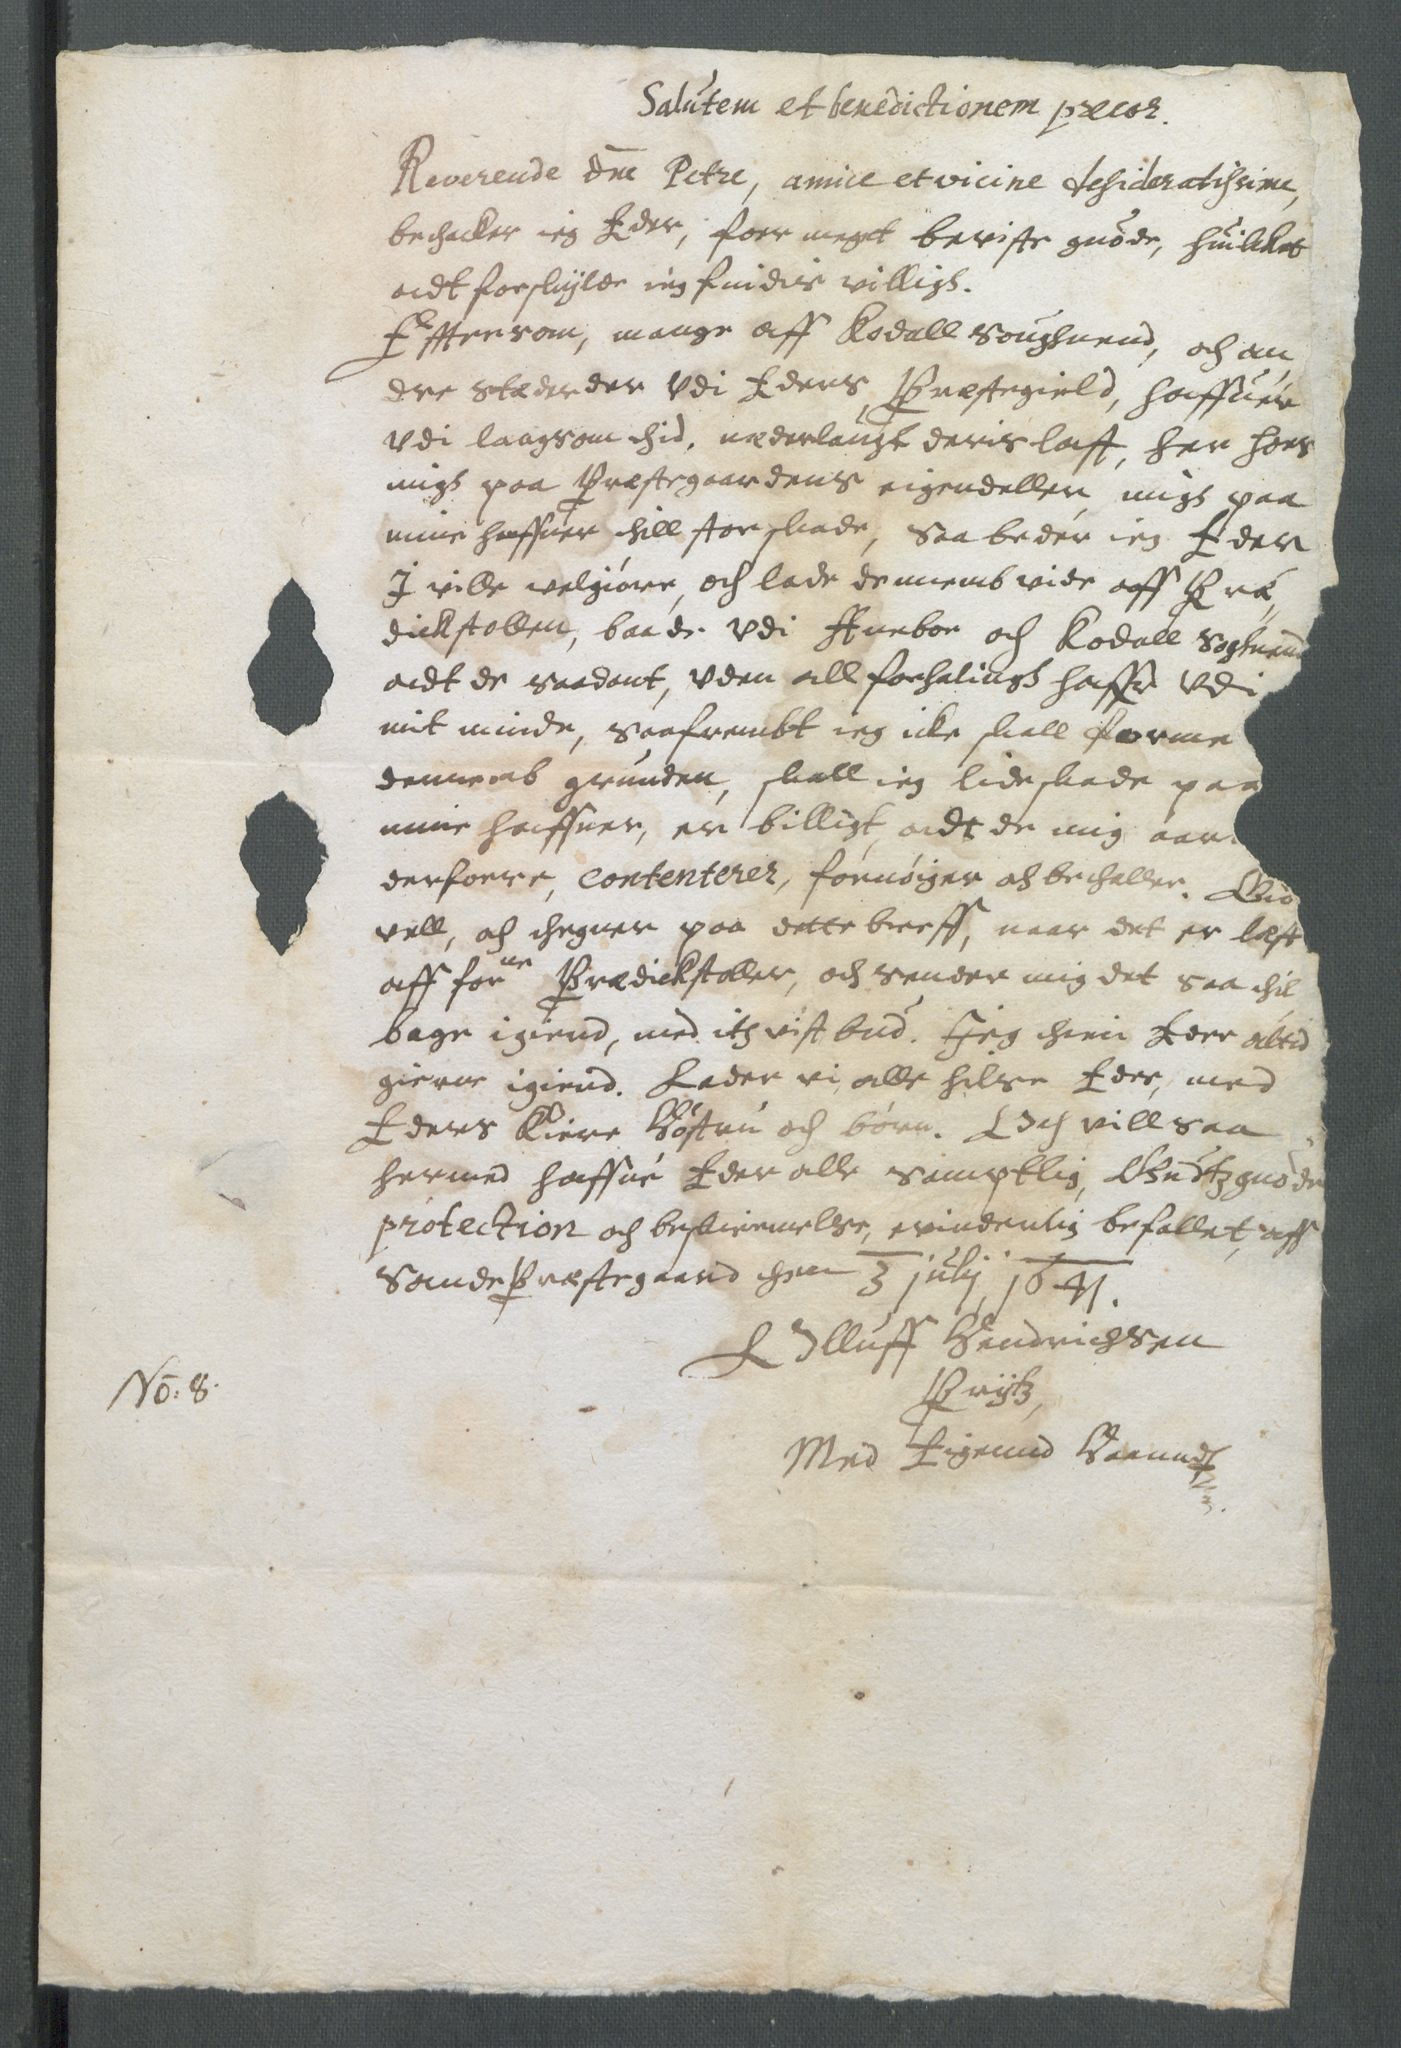 Salutem et benedictionem precor.
Reverende dne Petre, amice et vicine desideratissime,
bethacker ieg Eder, foer meget beviste gnóde, huilket
adt forskylde ieg findis villigh.
Efftersom, mange aff Kodall soughnend, och an,
dre stæder der Vdi Eders Præstegield, haffuer
Vdi langsom thid, nederlaught deris last, her hoes
migh paa Præstegaardens eigendeller, migh paa
mine haffner thill stor skade, Saa beder ieg Eder
I ville velgióre, och lade dennemb vide aff Præ,
dickstollen, baade Vdi Aneboe och Kodall Soghnend
adt de saadant, Vden all forhalingh haffr Vdi
mit minde, saafrembt ieg icke skall forme
dennemb grunden, skall ieg lide skade paa
mine haffner, er billigt, adt de mig aar
derforre, contenterer, fornóiger och bethaller. Gió
vell, och thegner paa dette breff, naar det er læst
aff forne Prædickstoller, och sender mig det saa thil
bage igiend, med ith vist bud. Jeg thien Eder altid
gierne igiend. Lader vi alle hilse Eder, med
Eders Kiere Hóstru och bórn. Och vill saa
hermed haffue Eder alle samptlig, Gudtz gnóde
protection och beskiermelse, evindenlig befallet, aff
Sande Præstegaard then 3 julij 1641.
Olluff Hendrichsen
Prytz,
Med Eigennd Haannd
No: 8.